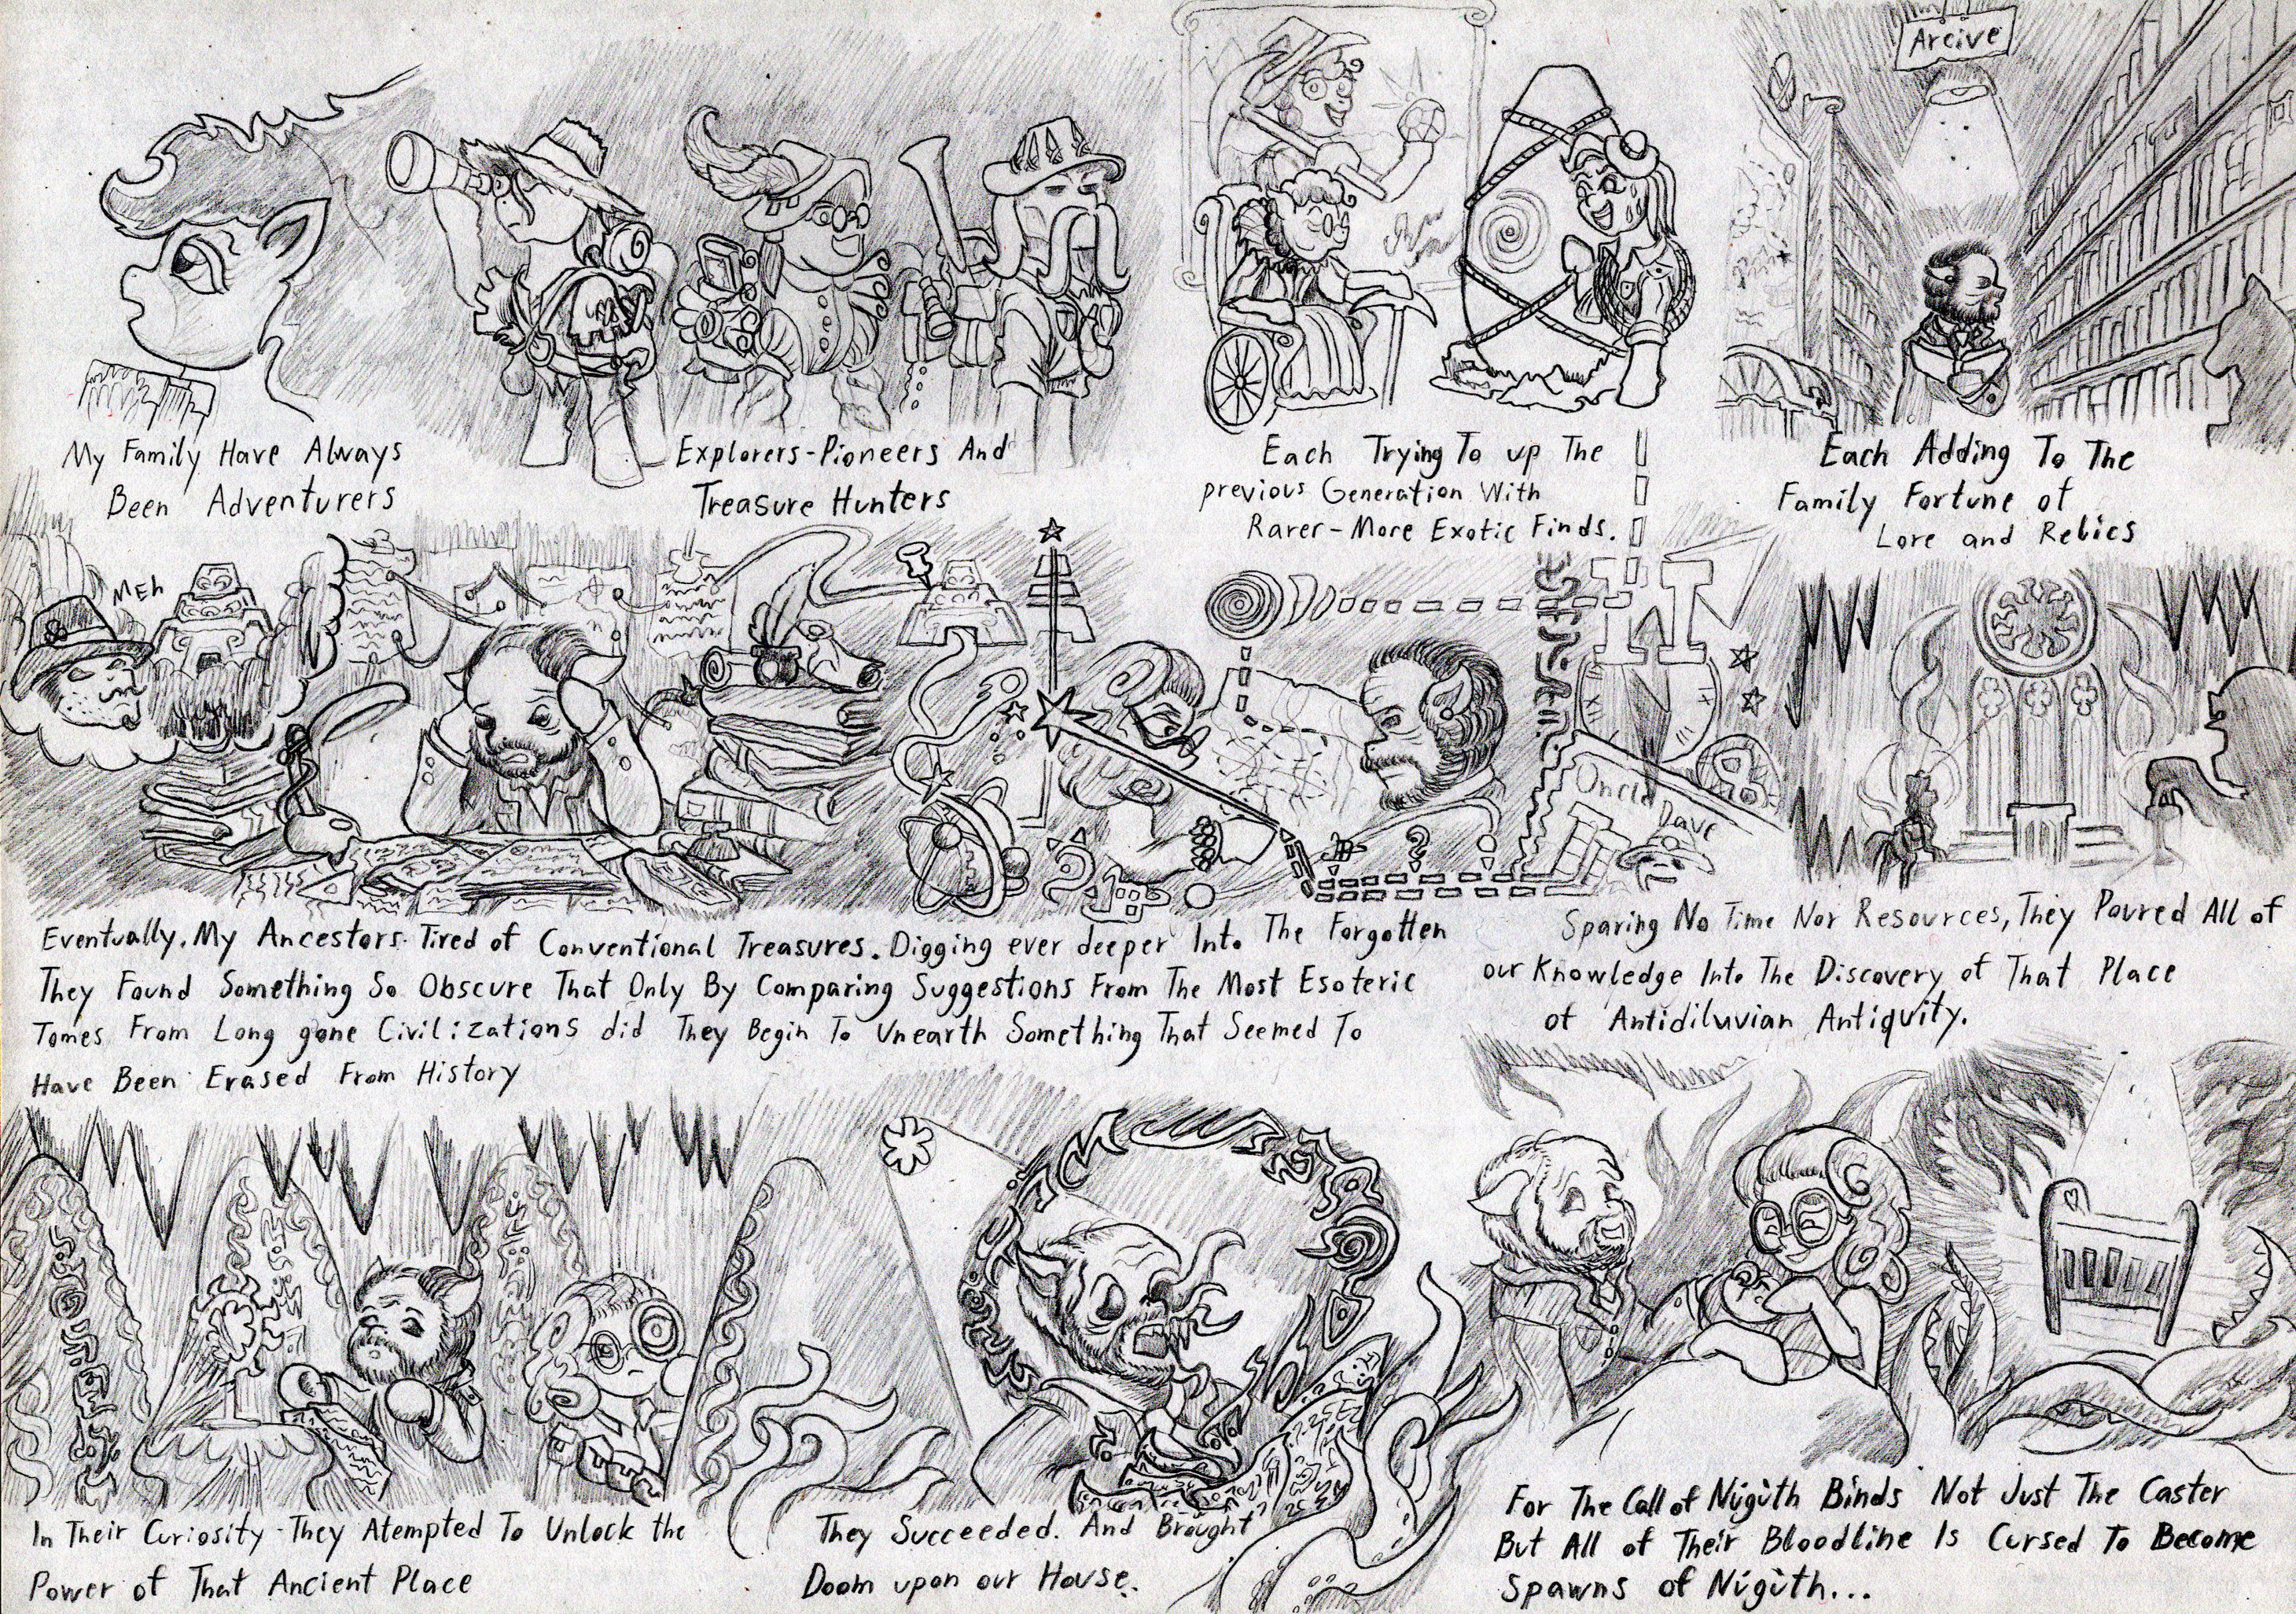 Arcive
My Family Have Always
Been Adventurers
Explorers-Pioneers And
Treasure Hunters
Each Trying To up The
previous Generation With
Rarer-More Exotic Finds.
Each Adding To The
Family Fortune of
Lore and Relics
MEh
Oncle Dave
Eventually. My Ancestors Tired of Conventional Treasures. Digging ever deeper Into The Forgotten
They Found Something So Obscure That Only By Comparing Suggestions From The Most Esoteric
Tomes From Long gone Civilizations did They Begin To Unearth Something That Seemed To
Have Been Erased From History
Sparing No Time Nor Resources, They Poured All of
our Knowledge Into The Discovery of That Place
of Antidiluvian Antiquity.
In Their Curiosity - They Atempted To Unlock the
Power of That Ancient Place
They Succeeded. And Brought
Doom upon our House.
For The Call of Nigùth Binds Not Just The Caster
But All of Their Bloodline Is Cursed To Become
Spawns of Nigùth...